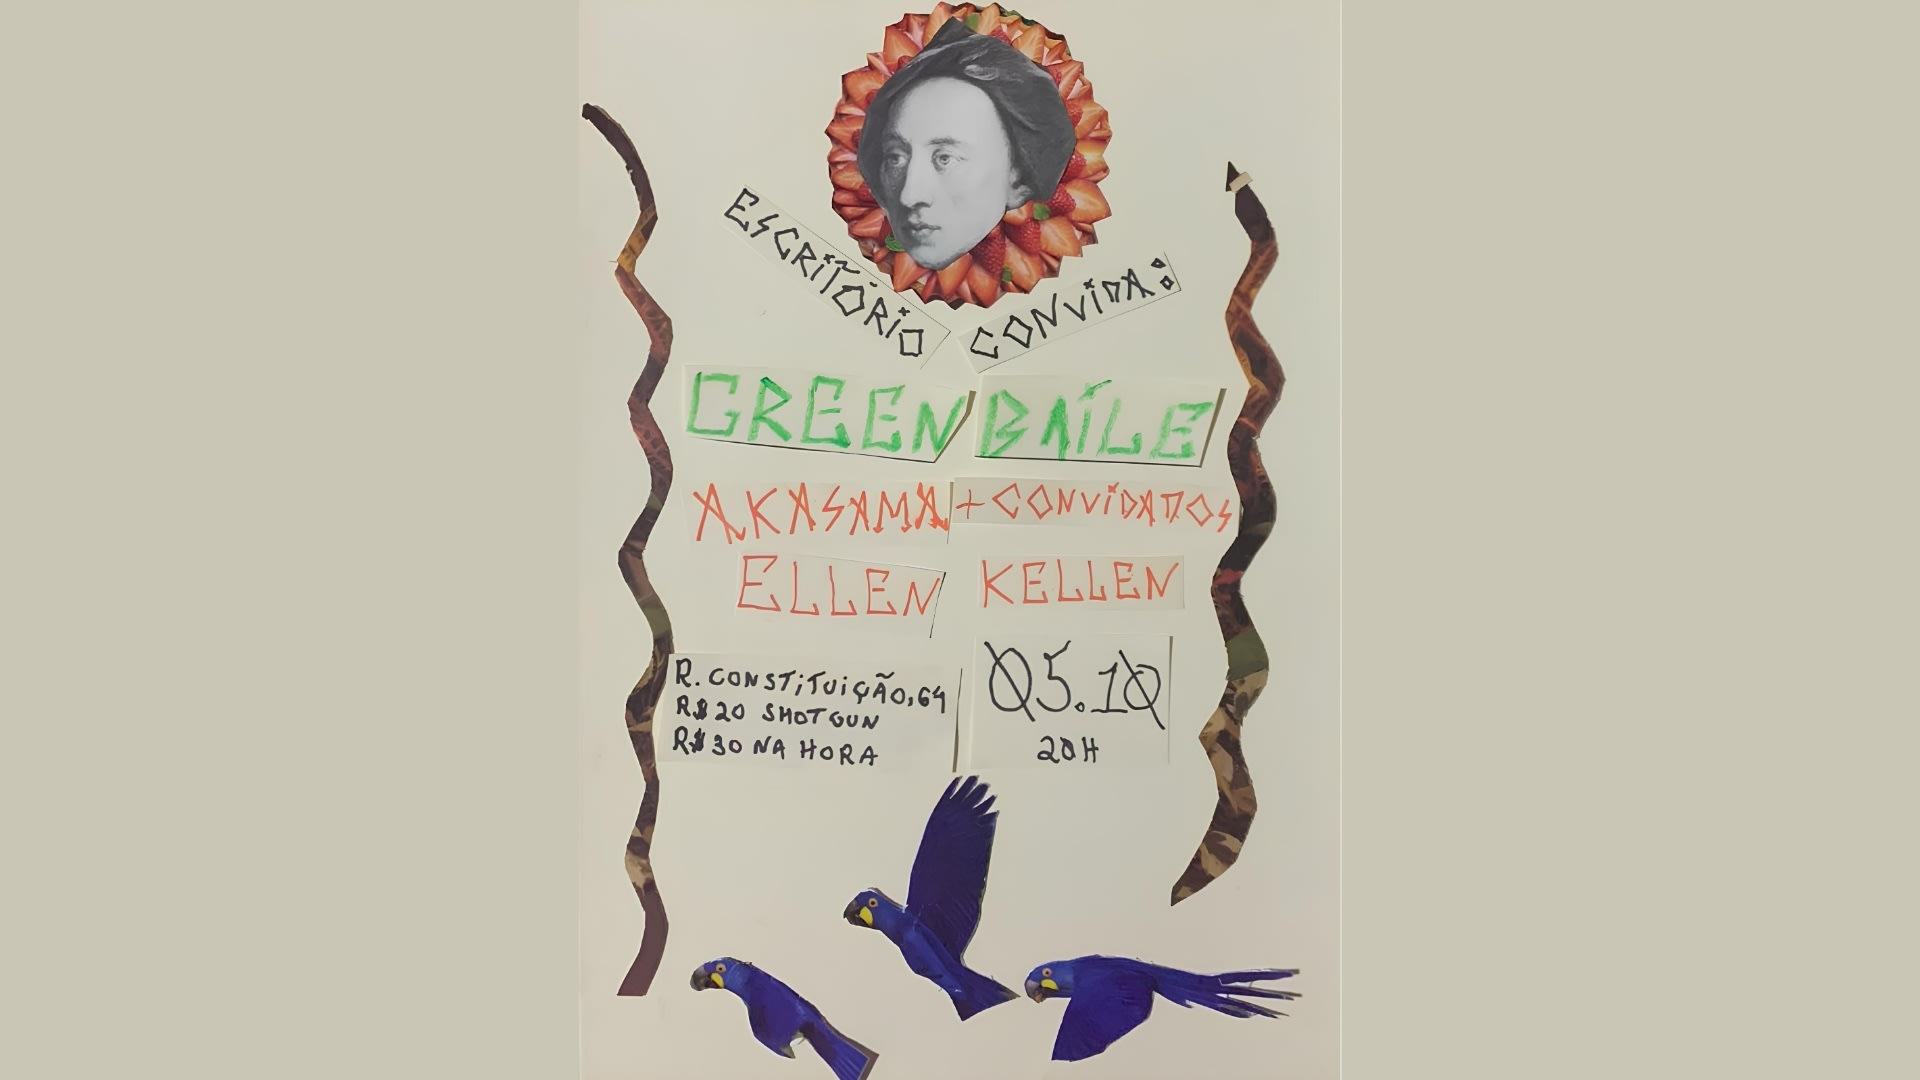 ESCRITÓRIO CONVIDA:
GREEN BAILE
AKASAMA + CONVIDADOS
ELLEN KELLEN
R. CONSTITUIÇÃO, 64
R$20 SHOTGUN
R$30 NA HORA
05.10
20H